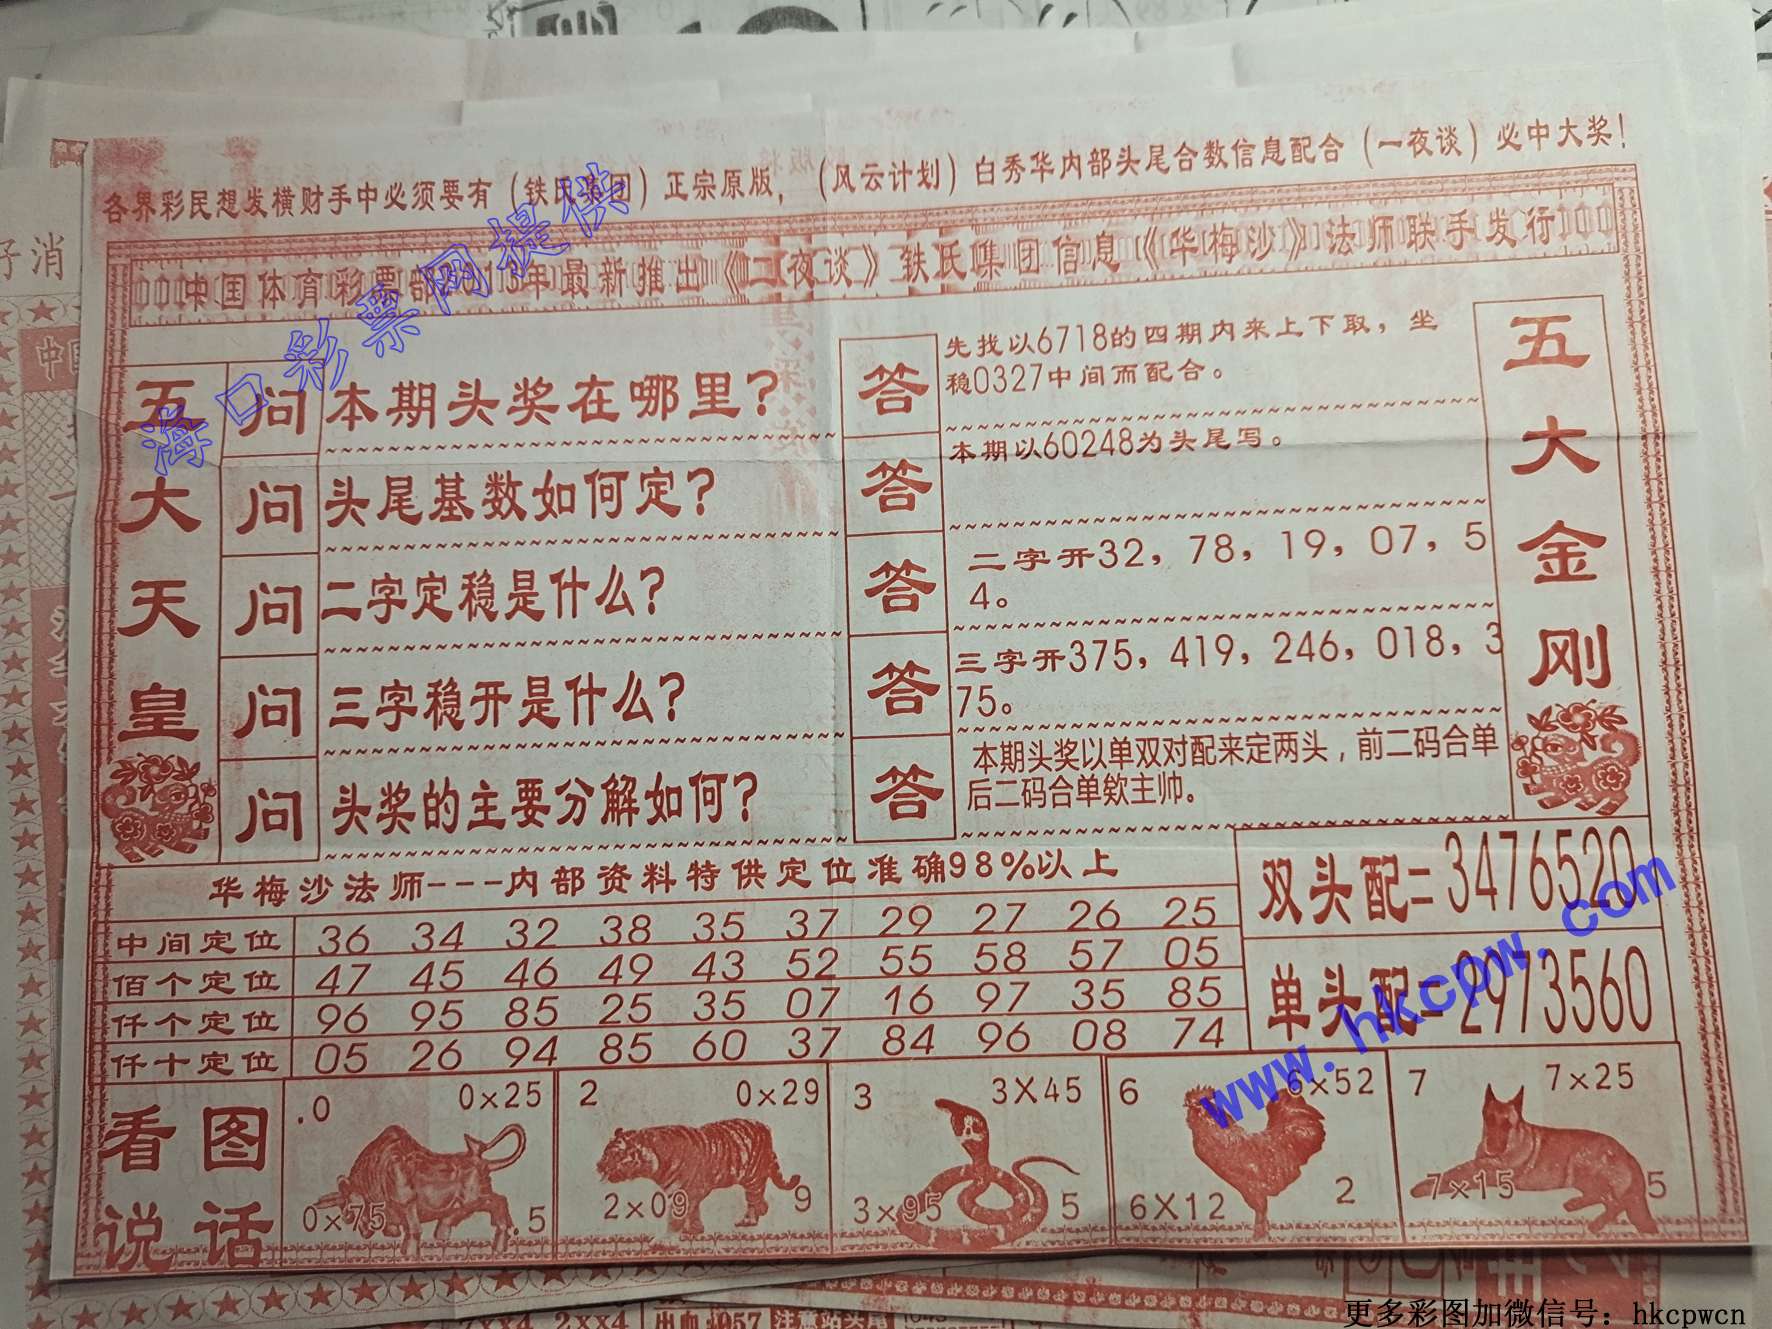 各界彩民想发横财手中必须要有(铁氏集团)正宗原版,(风云计划)白秀华内部头尾合数信息配合(一夜谈)必中大奖!
中国体育彩票部2013年最新推出《一夜谈》铁氏集团信息《华梅沙》法师联手发行
海口彩票网提供
五大天皇
问 本期头奖在哪里?
答 先找以6718的四期内来上下取,坐
稳0327中间而配合。
问 头尾基数如何定?
答 本期以60248为头尾写。
问 二字定稳是什么?
答 二字开32,78,19,07,5
4。
问 三字稳开是什么?
答 三字开375,419,246,018,3
75。
问 头奖的主要分解如何?
答 本期头奖以单双对配来定两头,前二码合单
后二码合单欸主帅。
五大金刚
华梅沙法师---内部资料特供定位准确98%以上
中间定位 36 34 32 38 35 37 29 27 26 25
佰个定位 47 45 46 49 43 52 55 58 57 05
仟个定位 96 95 85 25 35 07 16 97 35 85
仟十定位 05 26 94 85 60 37 84 96 08 74
双头配=3476520
单头配=2973560
www.hkcpw.com
看图
说话
.0 0×25
0×75 .5
2 0×29
2×09 9
3 3X45
3×95 5
6 6×52
6X12 2
7 7×25
7×15 5
好消
7xx4 2xx4 出血:057 注意站头尾
更多彩图加微信号：hkcpwcn